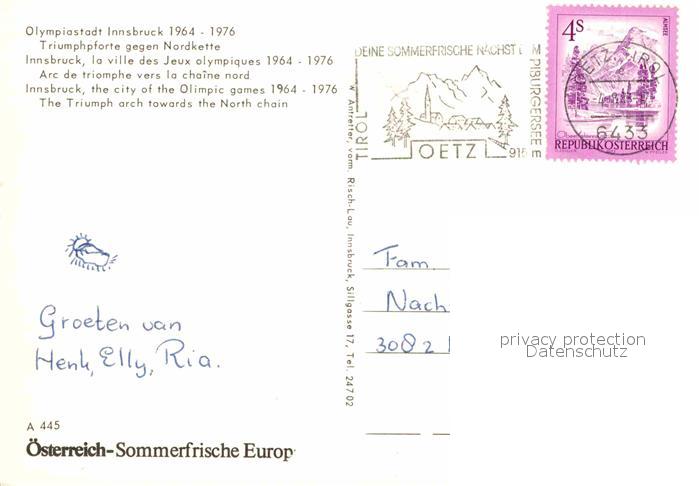 Olympiastadt Innsbruck 1964 - 1976
Triumphpforte gegen Nordkette
Innsbruck, la ville des Jeux olympiques 1964 - 1976
Arc de triomphe vers la chaîne nord
Innsbruck, the city of the Olimpic games 1964 - 1976
The Triumph arch towards the North chain
DEINE SOMMERFRISCHE NÄCHST DEM
PIBURGERSEE
TIROL
OETZ
915 m
4S
ALMSEE
OETZ, TIROL
6433
REPUBLIK ÖSTERREICH
Antretter, vorm. Risch-Lau, Innsbruck, Sillgasse 17, Tel. 24702
Groeten van
Henk, Elly, Ria.
Fam.
Nach
3082
privacy protection
Datenschutz
A 445
Österreich-Sommerfrische Europ